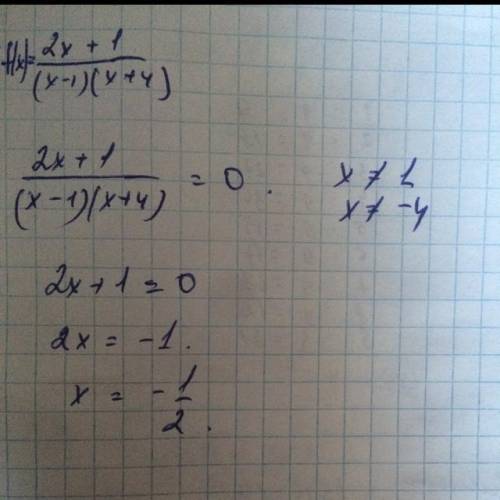 f(x)=\frac{2x + 1}{(x-1)(x+4)}
\frac{2x + 1}{(x-1)(x+4)} = 0. x ≠ 1
x ≠ -4
2x + 1 = 0
2x = -1.
x = -\frac{1}{2}.